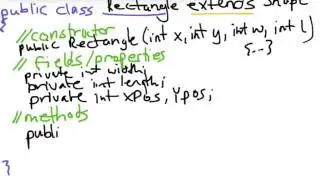 public class Rectangle extends Shape
{
//constructor
public Rectangle (int x, int y, int w, int l)
{...}
// fields/properties
private int width;
private int length;
private int xPos, Ypos;
//methods
publi
}